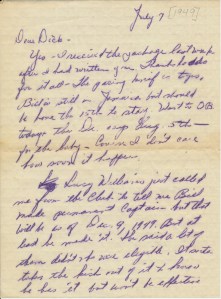 July 7 [1949]
Dear Dick -
Yes - I received the package last week
after I had written you. Thanks
for it all - The
Bill is still in Jamaica but should
be home the 15th to retain. Went to OB
the Dr. says Aug. 5th -
for the baby - I don't care
how soon it happens.
Lucy Williams just called
me from the Club to tell me Bill
made permanent Captain but that
will be as of Dec. 9, 1949. But at
last he made it. He said a lot of
them didn't who were eligible. It sorta
takes the kick out of it to know
he has it but won't be effective